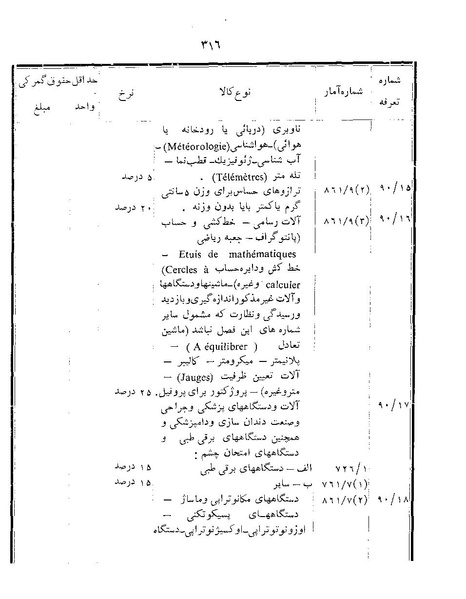 ۳۱۶
شماره تعرفه شماره آمار نوع کالا نرخ حداقل حقوق گمرکی
واحد مبلغ
ناوبری (دریائی یا رودخانه یا
هوائی) ـ هواشناسی (Météorologie) ـ
آب شناسی ـ ژئوفیزیک ـ قطب نما ـ
تله متر (Télémètres) . ۵ درصد
۹۰/۱۵ ۸۶۱/۹(۲) ترازوهای حساس برای وزن ۵ سانتی
گرم یا کمتر با یا بدون وزنه . ۲۰ درصد
۹۰/۱۶ ۸۶۱/۹(۳) آلات رسامی ـ خط کشی و حساب
(پانتوگراف ـ جعبه ریاضی
Etuis de mathématiques ـ
خط کش و دایره حساب (Cercles à
calculer وغیره) ـ ماشینها و دستگاهها
و آلات غیر مذکور اندازه گیری و بازدید
ورسیدگی و نظارت که مشمول سایر
شماره های این فصل نباشد (ماشین
تعادل (A équilibrer) ـ
پلانیمتر ـ میکرومتر ـ کالیبر ـ
آلات تعیین ظرفیت (Jauges) ـ
متروغیره) ـ پروژکتور برای پروفیل. ۲۵ درصد
۹۰/۱۷ آلات و دستگاههای پزشکی و جراحی
وصنعت دندان سازی و دامپزشکی و
همچنین دستگاههای برقی طبی و
دستگاههای امتحان چشم :
۷۲۶/۱ الف ـ دستگاههای برقی طبی ۱۵ درصد
۷۶۱/۷(۱) ب ـ سایر ۱۵ درصد
۹۰/۱۸ ۸۶۱/۷(۲) دستگاههای مکانوتراپی و ماساژ ـ
دستگاههای پسیکوتکنی ـ
اوزونوتوتراپی ـ اوکسیژنوتراپی ـ دستگاه